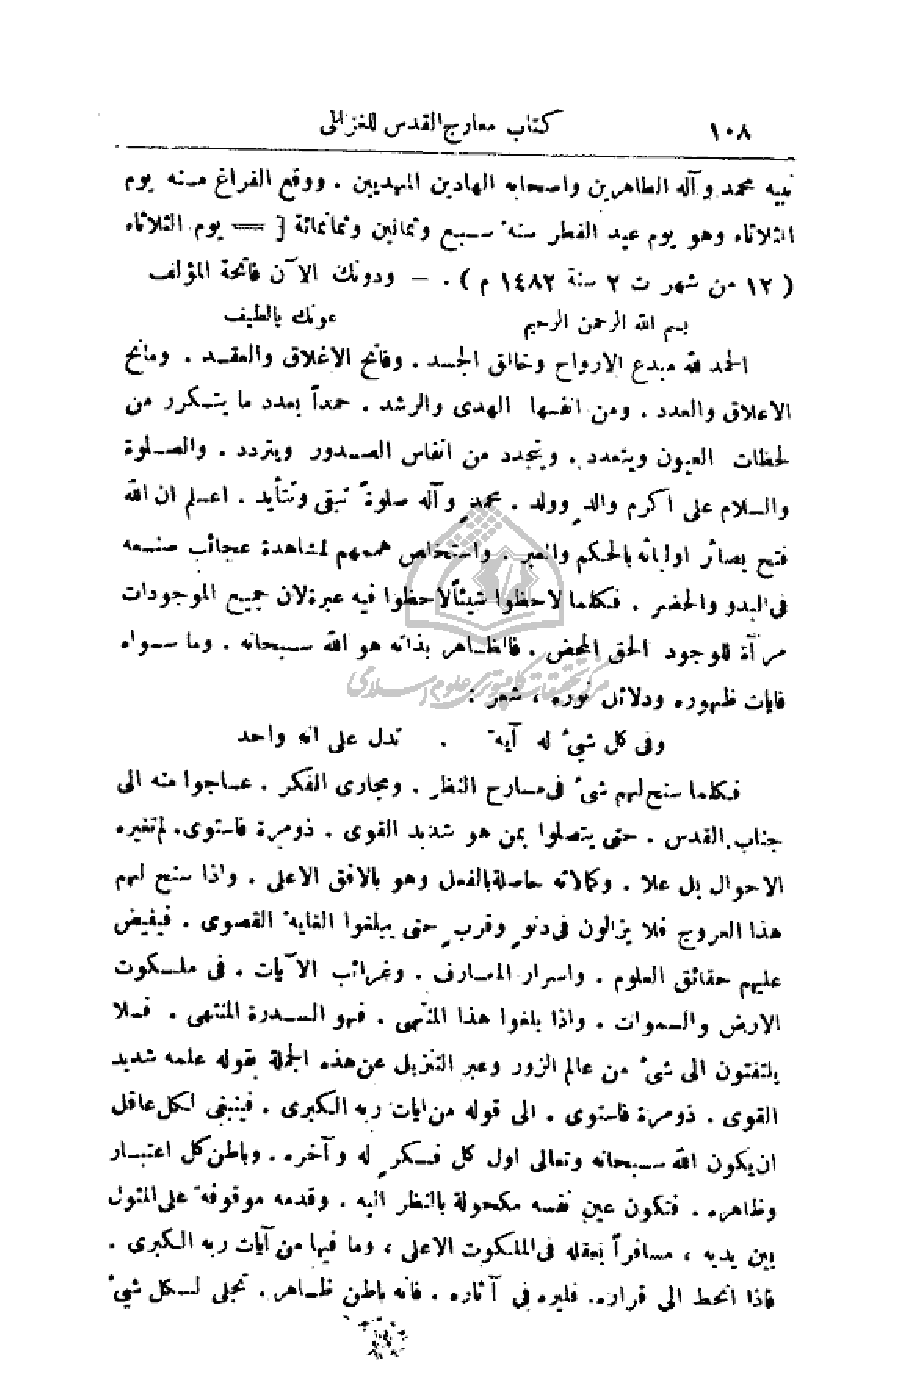 ١٠٨ كتاب معارج القدس للغزالي
نبيه محمد وآله الطاهرين واصحابه الهادين المهديين . ووقع الفراغ منه يوم
الثلاثاء وهو يوم عيد الفطر سنة سبع وثمانين وثمانمائة [ = يوم الثلاثاء
( ١٢ من شهر ت ٢ سنة ١٤٨٢ م ) . — ودونك الآن فاتحة المؤلف
بسم الله الرحمن الرحيم عونك يالطيف
الحمد لله مبدع الارواح وخالق الجسد . وفاتح الاغلاق والعقد . ومانح
الاعلاق والعدد . ومن انفسها الهدى والرشد . حمداً بعدد ما يتكرر من
لحظات العيون ويتعدد . ويتجدد من انفاس الصدور ويتردد . والصلوة
والسلام على اكرم والدٍ وولد . محمدٍ وآله صلوةً تبقى وتتأيد . اعلم ان الله
فتح بصائر اوليائه بالحكم والعبر . واستخلص هممهم لمشاهدة عجائب صنعه
فى البدو والحضر . فكلما لاحظوا شيئاً لاحظوا فيه عبرة لان جميع الموجودات
مرآة للوجود الحق المحض . فالظاهر بذاته هو الله سبحانه . وما سواه
فايات ظهوره ودلائل نوره ، شعر :
وفى كل شيءٍ له آية . تدل على انه واحد
فكلما سنح لهم شئ فى مسارح النظر . ومجارى الفكر . عاجوا منه الى
جناب القدس . حتى يتصلوا بمن هو شديد القوى . ذو مرة فاستوى . لم تغيره
الاحوال بل علا . وكمالاته حاصلة بالفعل وهو بالافق الاعلى . واذا سنح لهم
هذا العروج فلا يزالون فى دنوٍ وقربٍ حتى يبلغوا الغاية القصوى . فيفيض
عليهم حقائق العلوم . واسرار المعارف . وغرائب الآيات . فى ملكوت
الارض والسموات . واذا بلغوا هذا المنتهى . فهو السدرة المنتهى . فلا
يلتفتون الى شئ من عالم الزور وعبر التنزيل عن هذه الجملة بقوله علمه شديد
القوى . ذو مرة فاستوى . الى قوله من ايات ربه الكبرى . فينبغى لكل عاقل
ان يكون الله سبحانه وتعالى اول كل فكرٍ له وآخره . وباطن كل اعتبار
وظاهره . فتكون عين نفسه مكحولة بالنظر اليه . وقدمه موقوفة على المثول
بين يديه ، مسافراً بعقله فى الملكوت الاعلى ، وما فيها من آيات ربه الكبرى .
فاذا انحط الى قراره. فليره فى آثاره . فانه باطن ظاهر . تجلى لكل شيءٍ
مركز تحقيقات كامپيوترى علوم اسلامى